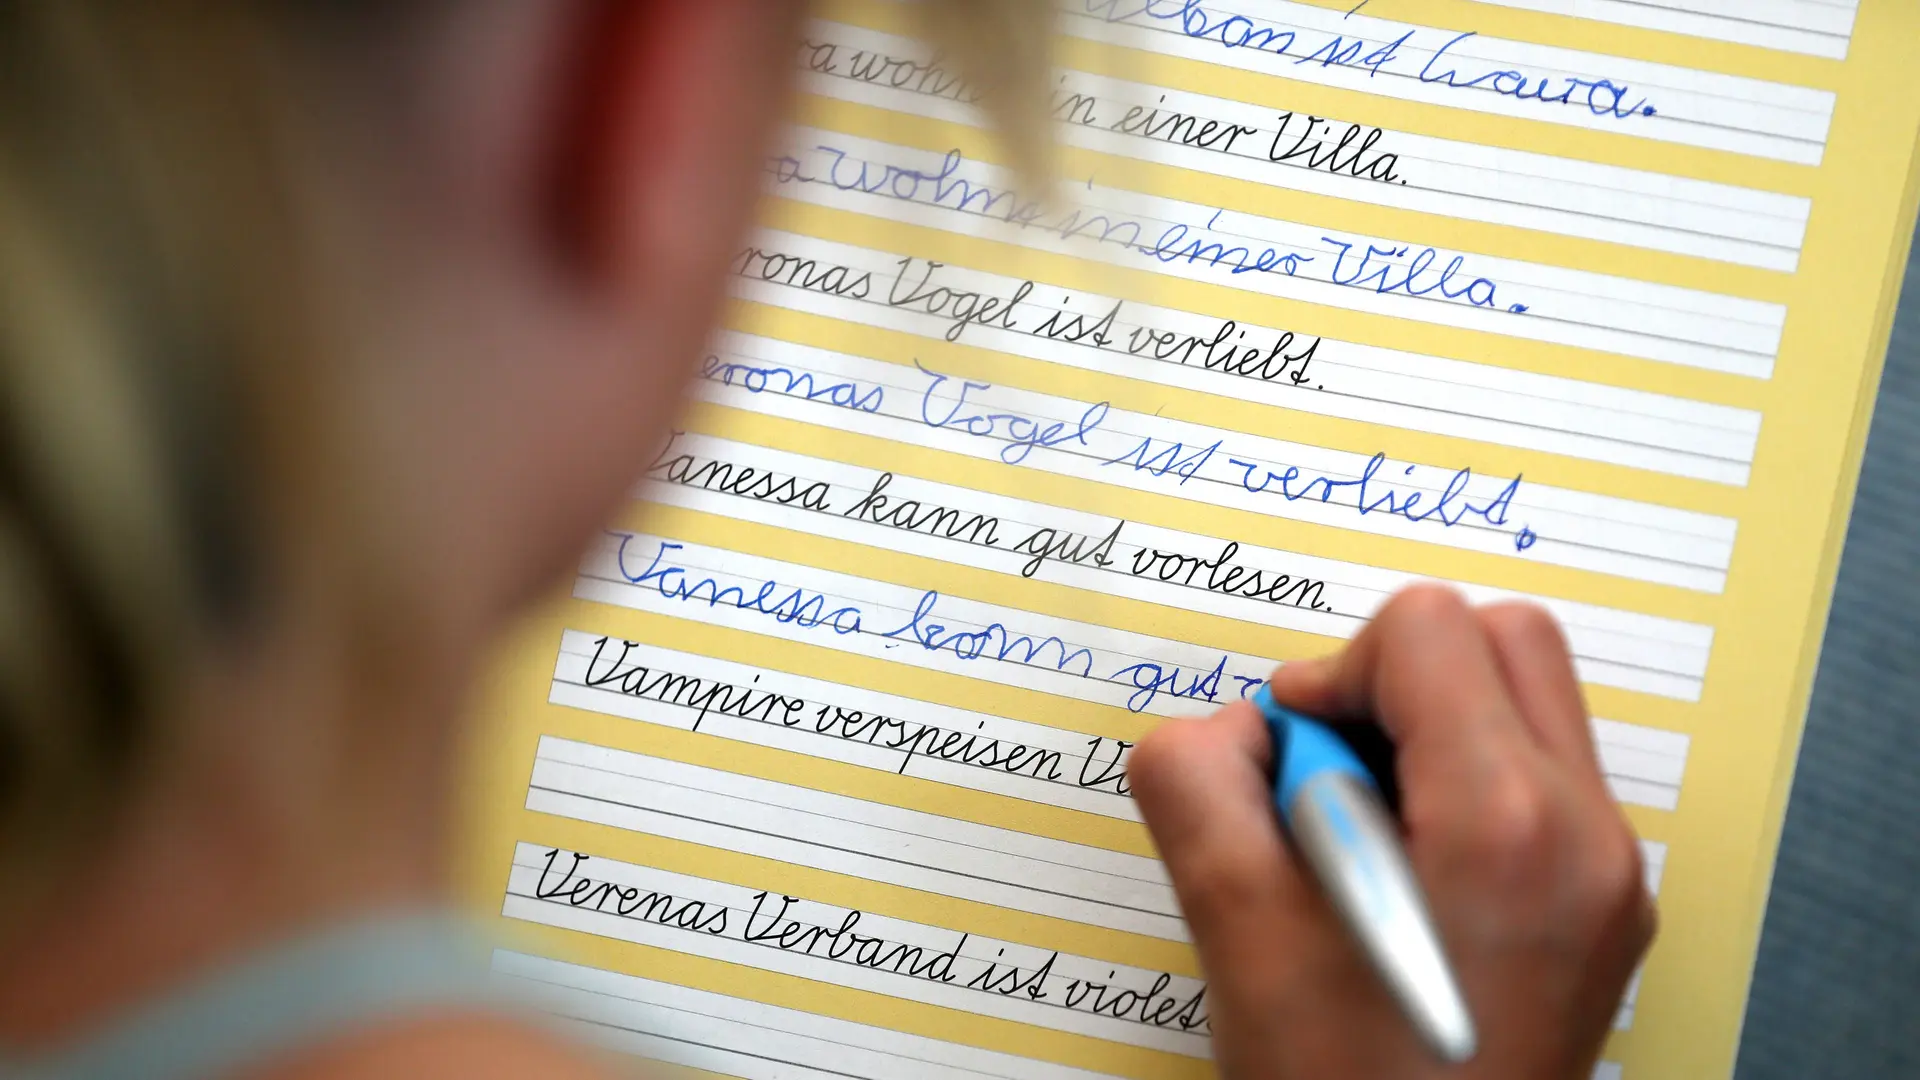 ist
wohnt in einer Villa.
wohnt in einer Villa.
ronas Vogel ist verliebt.
eronas Vogel ist verliebt.
Vanessa kann gut vorlesen.
Vanessa kann gut
Vampire verspeisen
Verenas Verband ist violet.